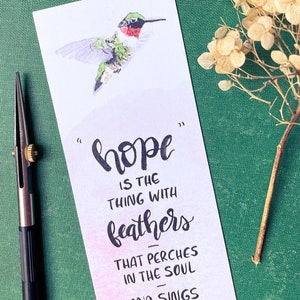 "hope"
IS THE
THING WITH
feathers
THAT PERCHES
IN THE SOUL
AND SINGS